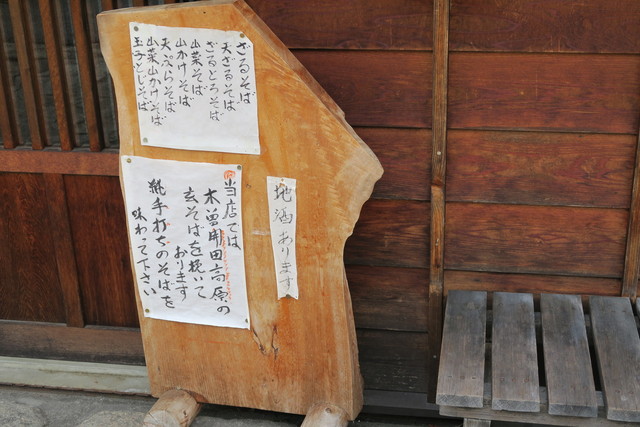 ざるそば
天ざるそば
ざるとろそば
山菜そば
山かけそば
天ぷらそば
山菜山かけそば
玉子とじそば
当店では
木曽開田高原の
玄そばを挽いて
おります
純手打ちのそばを
味わって下さい
地酒あります